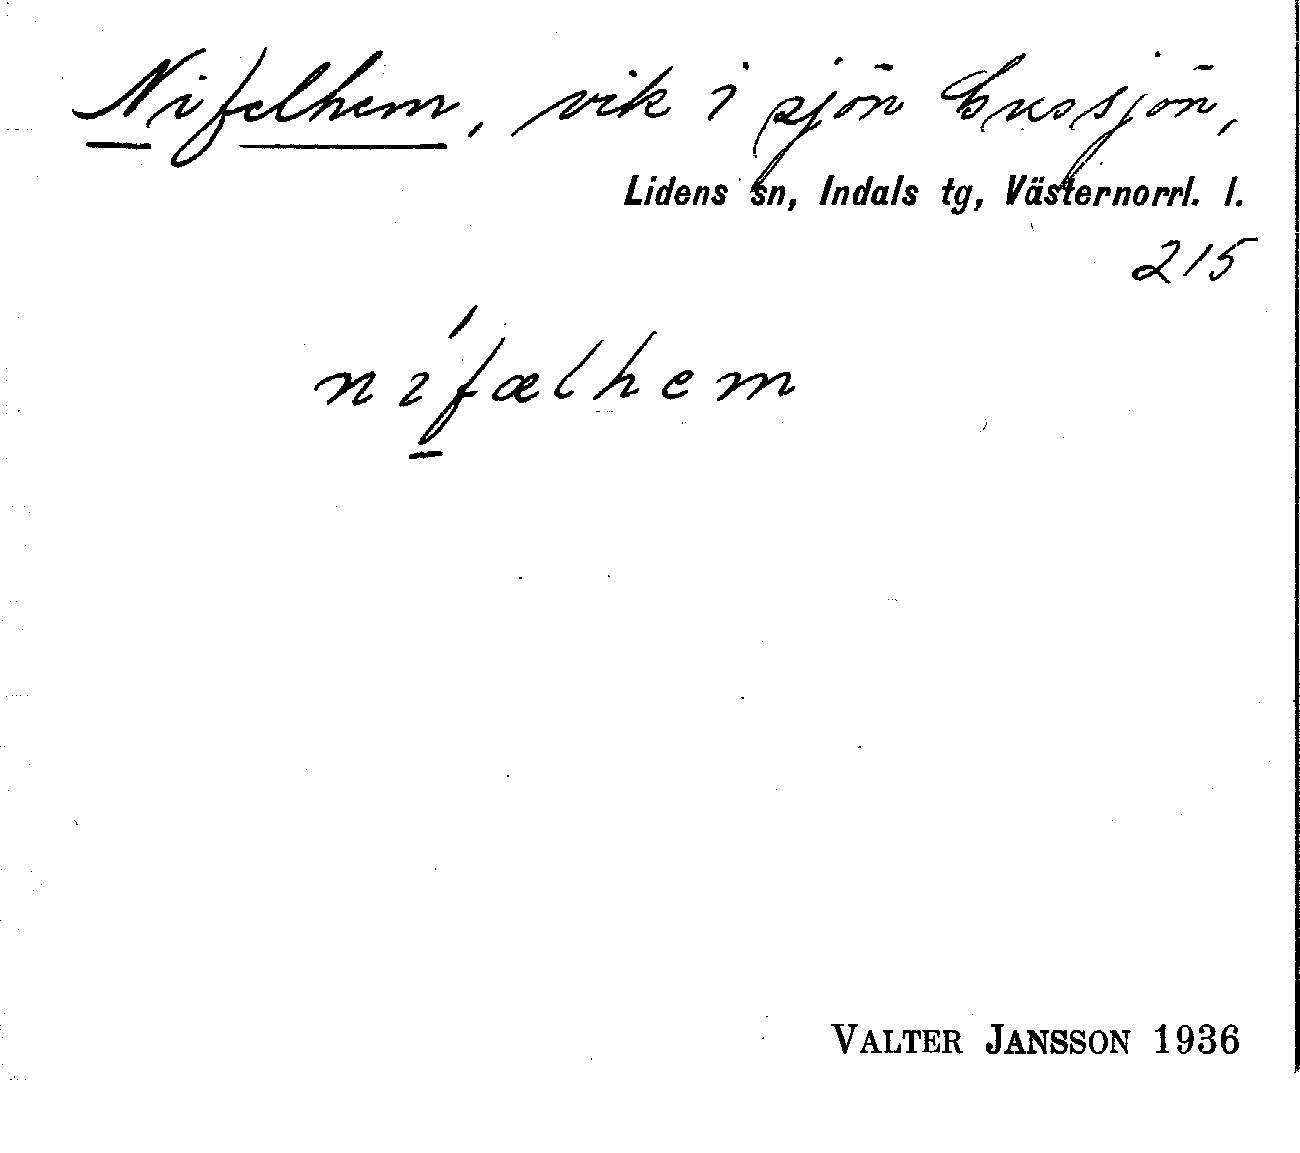 Nifelhem, vik i sjön Oxsjön,
Lidens sn, Indals tg, Västernorrl. l.
215
nifælhem
VALTER JANSSON 1936